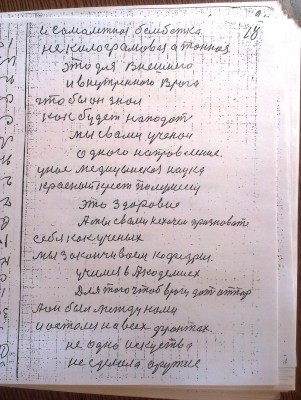 28
и самолётная бомбёжка
не килограмовая а тонная
это для внешнего
и внутреннего врага
что бы он знал
как будет нападат
мы с вами ученои
одного направление.
уное медицынская наука
красный крест полумесец
это здоровие
А мы с вами не хочем признавать
себя как ученых
мы закончиваем кафедри.
учимся в Академиех
Для того чтоб врагу дат отпор
А он был между нами
и остался на всех фронтах
не одно искуство
не сделала оружие